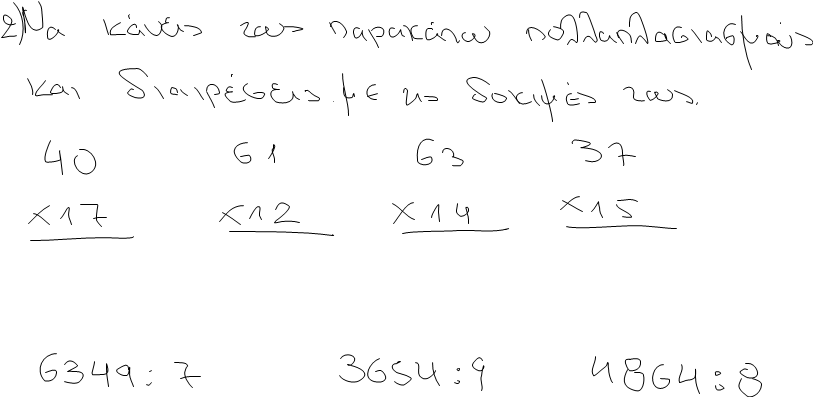 2) Να κάνεις τους παρακάτω πολλαπλασιασμούς
και διαιρέσεις με τις δοκιμές τους.
40 61 63 37
x17 x12 x14 x15
6349:7 3654:9 4864:8